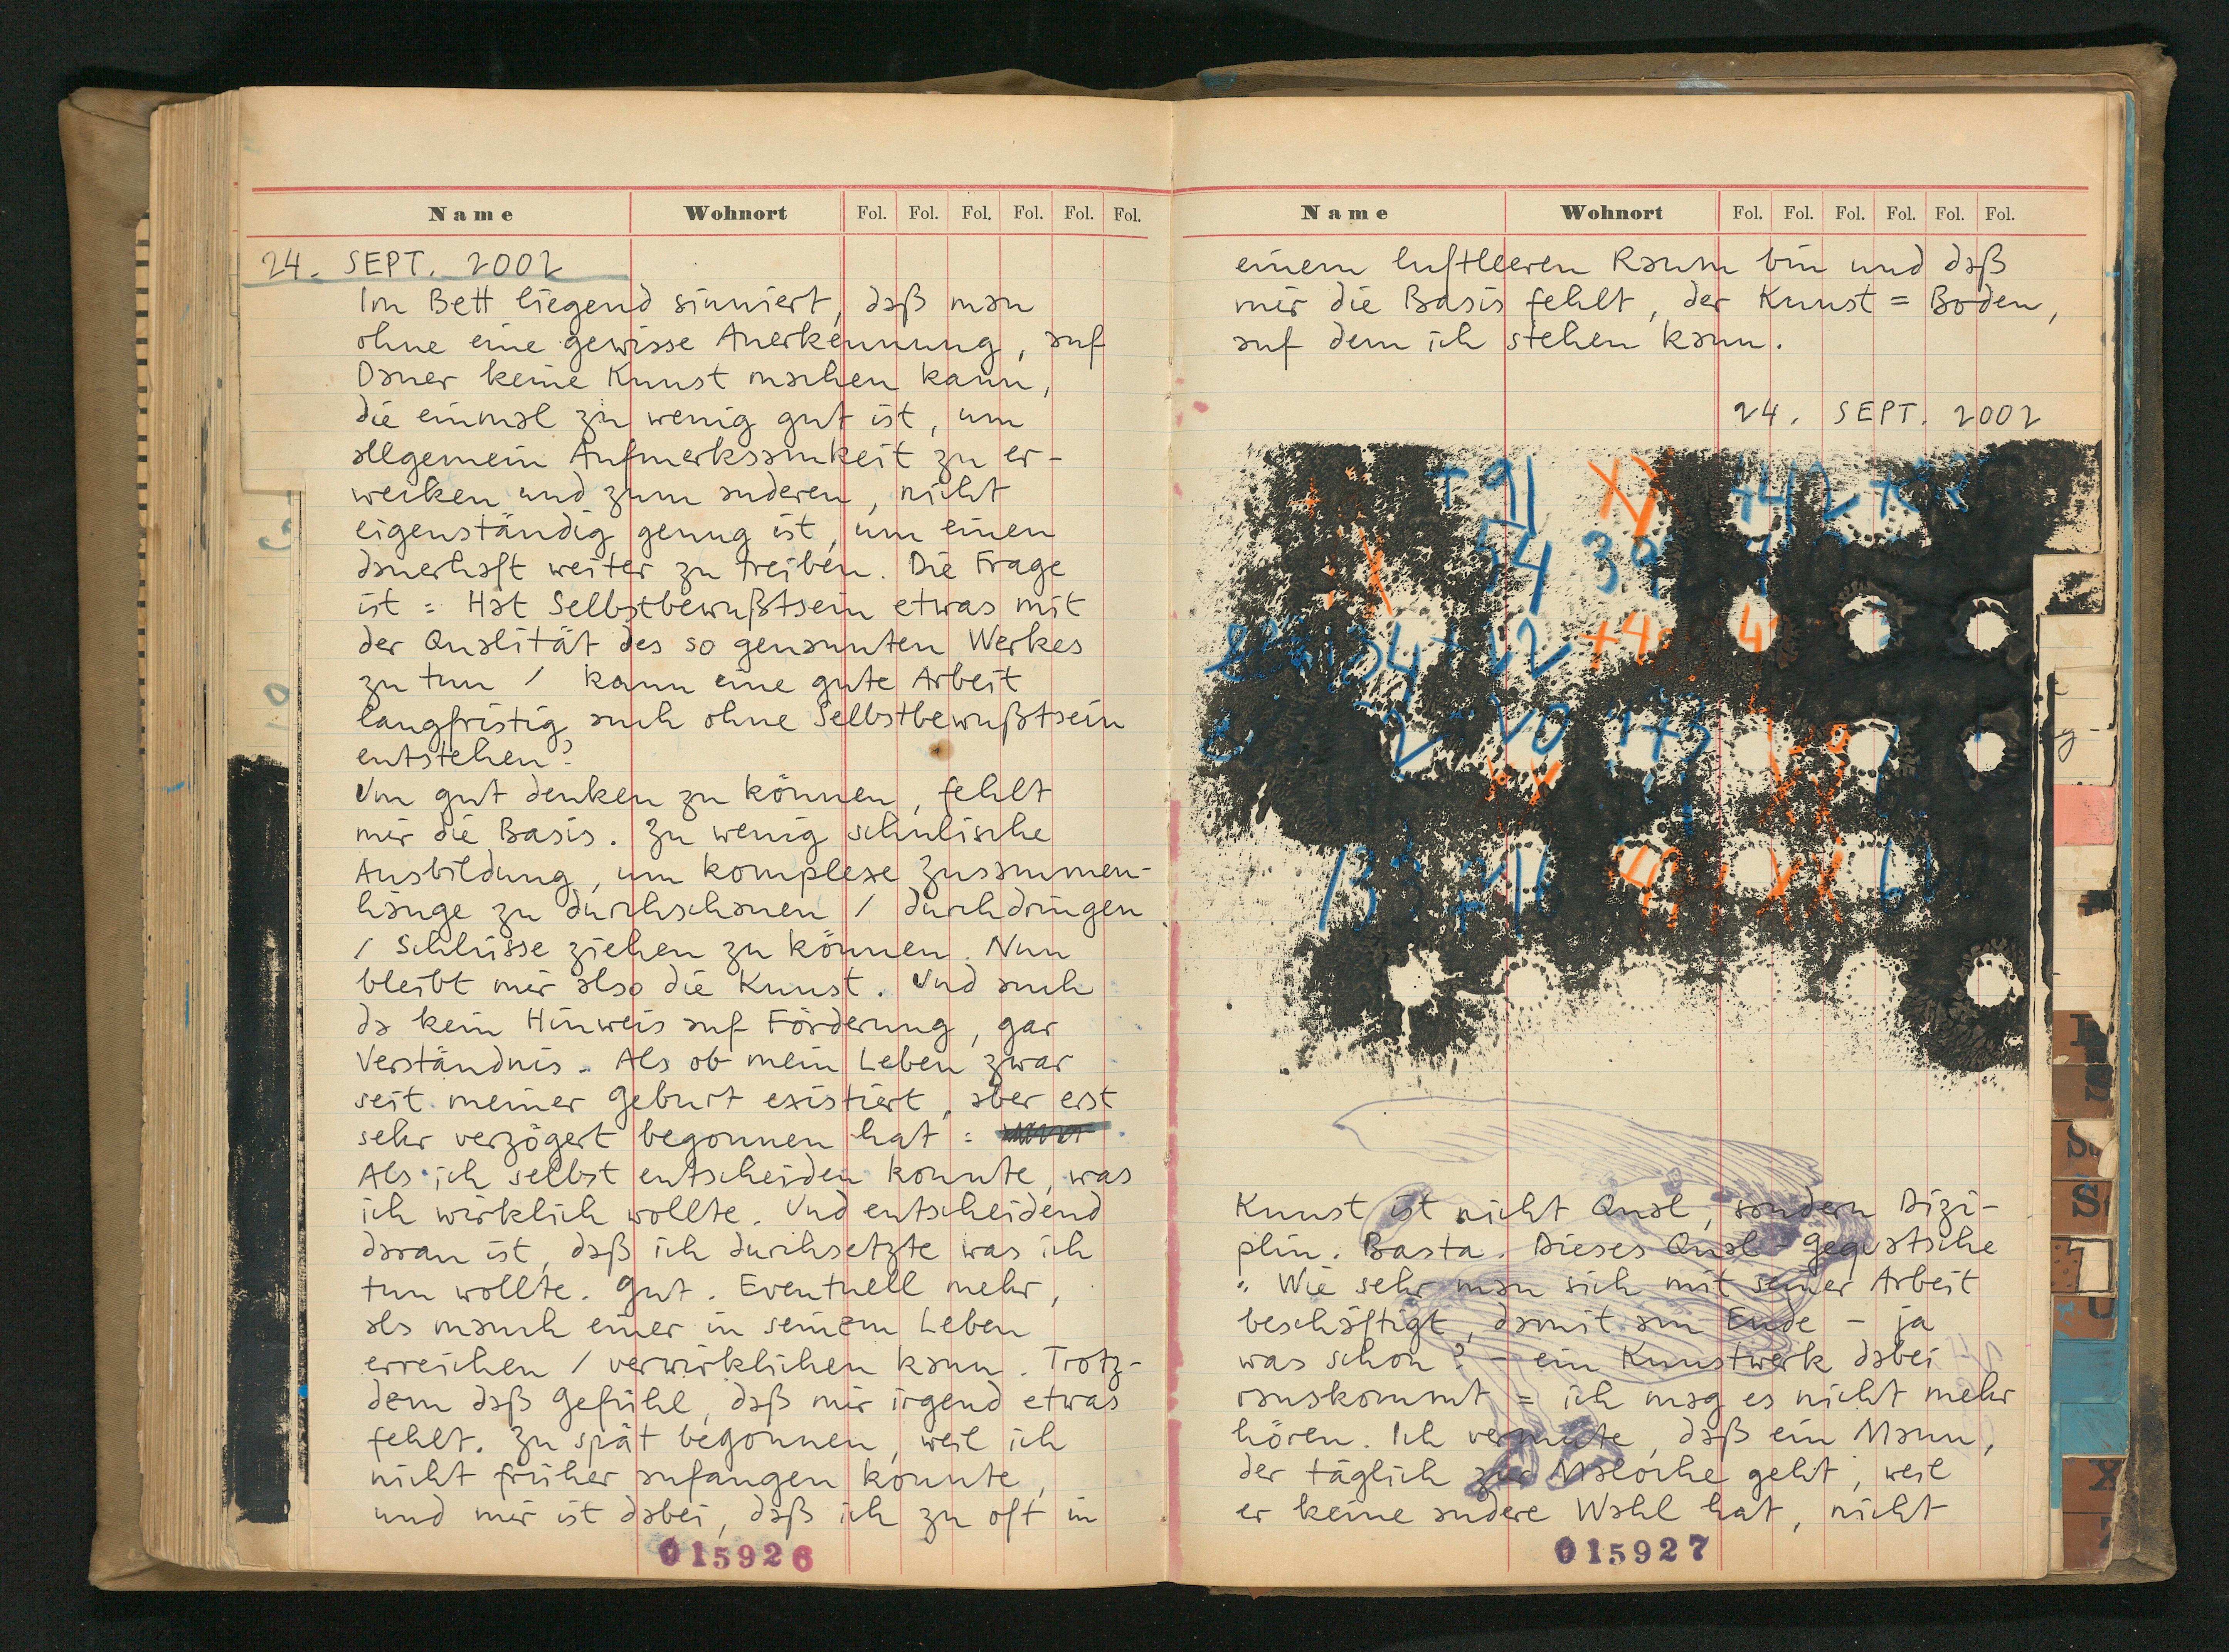 Name Wohnort Fol. Fol. Fol. Fol. Fol. Fol.
24. SEPT. 2002
Im Bett liegend sinniert, daß man
ohne eine gewisse Anerkennung, auf
Dauer keine Kunst machen kann,
die einmal zu wenig gut ist, um
allgemein Aufmerksamkeit zu er-
wecken und zum anderen, nicht
eigenständig genug ist, um einen
dauerhaft weiter zu treiben. Die Frage
ist = Hat Selbstbewußtsein etwas mit
der Qualität des so genannten Werkes
zu tun / kann eine gute Arbeit
langfristig auch ohne Selbstbewußtsein
entstehen?
Um gut denken zu können, fehlt
mir die Basis. Zu wenig schulische
Ausbildung, um komplexe Zusammen-
hänge zu durchschauen / durchdringen
/ Schlüsse ziehen zu können. Nun
bleibt mir also die Kunst. Und auch
da kein Hinweis auf Förderung, gar
Verständnis. Als ob mein Leben zwar
seit meiner Geburt existiert, aber erst
sehr verzögert begonnen hat =
Als ich selbst entscheiden konnte, was
ich wirklich wollte. Und entscheidend
daran ist, daß ich durchsetzte was ich
tun wollte. Gut. Eventuell mehr,
als manch einer in seinem Leben
erreichen / verwirklichen kann. Trotz-
dem daß Gefühl, daß mir irgend etwas
fehlt. Zu spät begonnen, weil ich
nicht früher anfangen konnte,
und mir ist dabei, daß ich zu oft in
015926
Name Wohnort Fol. Fol. Fol. Fol. Fol. Fol.
einem luftleeren Raum bin und daß
mir die Basis fehlt, der Kunst = Boden,
auf dem ich stehen kann.
24. SEPT. 2002
+91
54 39
134
20 +73
Kunst ist nicht Qual, sondern Dizi-
plin. Basta. Dieses Qual - Gequatsche
" Wie sehr man sich mit seiner Arbeit
beschäftigt, damit am Ende - ja
was schon? - ein Kunstwerk dabei
rauskommt = ich mag es nicht mehr
hören. Ich vermute, daß ein Mann,
der täglich zur Maloche geht, weil
er keine andere Wahl hat, nicht
015927